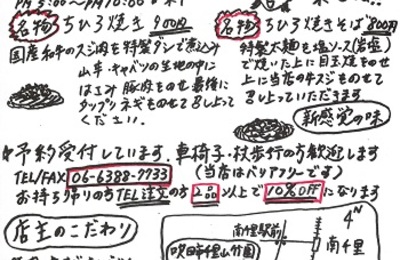 PM 5:00〜PM10:00
名物 ちひろ焼き 900円
国産和牛のスジ肉を特製ダシで煮込み
山芋・キャベツの生地の中に
はさみ 豚肉のせ最後に
タップリネギものせて召し上って
ください。
名物 ちひろ焼きそば 800円
特製太麺を塩ソース(岩塩)
で焼いた上に目玉焼のせ
上に当店の牛スジものせて
召し上っていただきます
新感覚の味
予約受付しています。車椅子・杖歩行の方歓迎します
TEL/FAX 06-6388-9733 (当店はバリアフリーです)
お持ち帰りの方TEL注文の方 2品以上で10%OFFになります
店主のこだわり
南千里駅前
4 N
南千里
吹田市千里山竹園